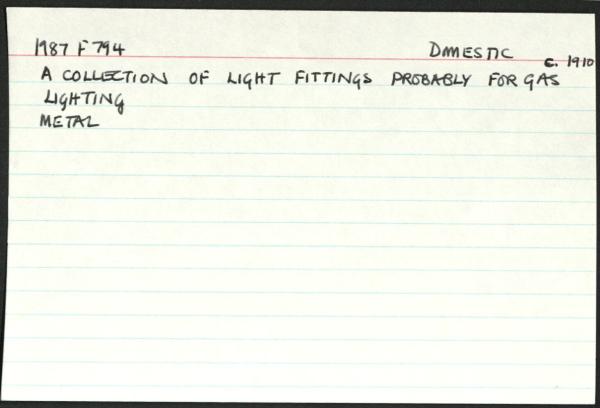 1987 F 794 DOMESTIC c. 1910
A COLLECTION OF LIGHT FITTINGS PROBABLY FOR GAS
LIGHTING
METAL